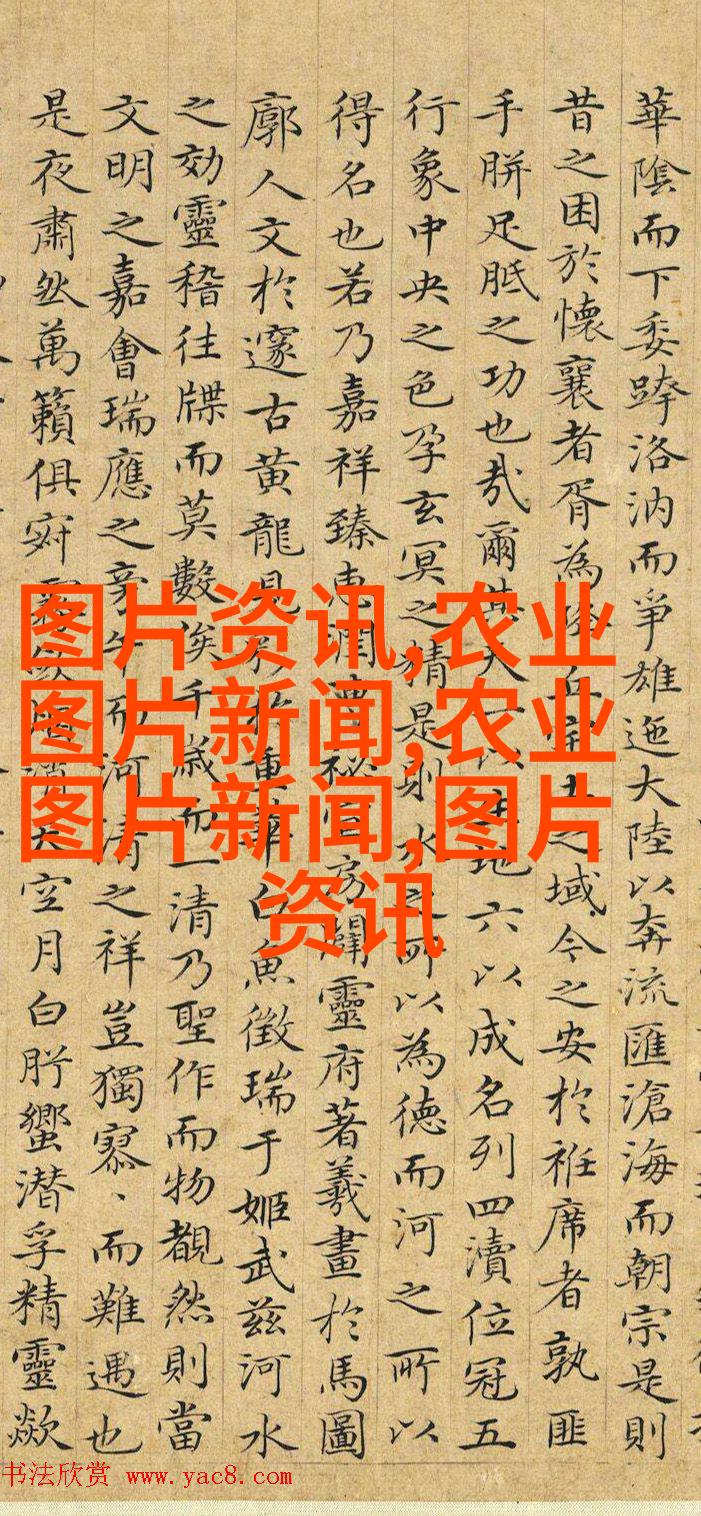 華陰而下委跨洛汭而爭雄迤大陸以奔流匯滄海而朝宗是則
昔之困於懷襄者胥為降丘宅土之域今之安於袵席者孰匪
手胼足胝之功也哉爾其天一以生地六以成名列四瀆位冠五
行象中央之色孕玄冥之精是則水之所以為德而河之所以
得名也若乃嘉祥臻惠潤秘房闢靈府著羲畫於馬圖
廓人文於邃古黃龍見於重華白魚徵瑞于姬武茲河水
之効靈稽往牒而莫數俟千歲而一清乃聖作而物覩然則當
文明之嘉會瑞應之旁午而河清之祥豈獨寥、而難遇也
是夜肅然萬籟俱寂霧天空月白肸蠁潛孚精靈歘
图片资讯,农业
图片新闻,农业
图片新闻,图片
资讯
书法欣赏 www.yac8.com